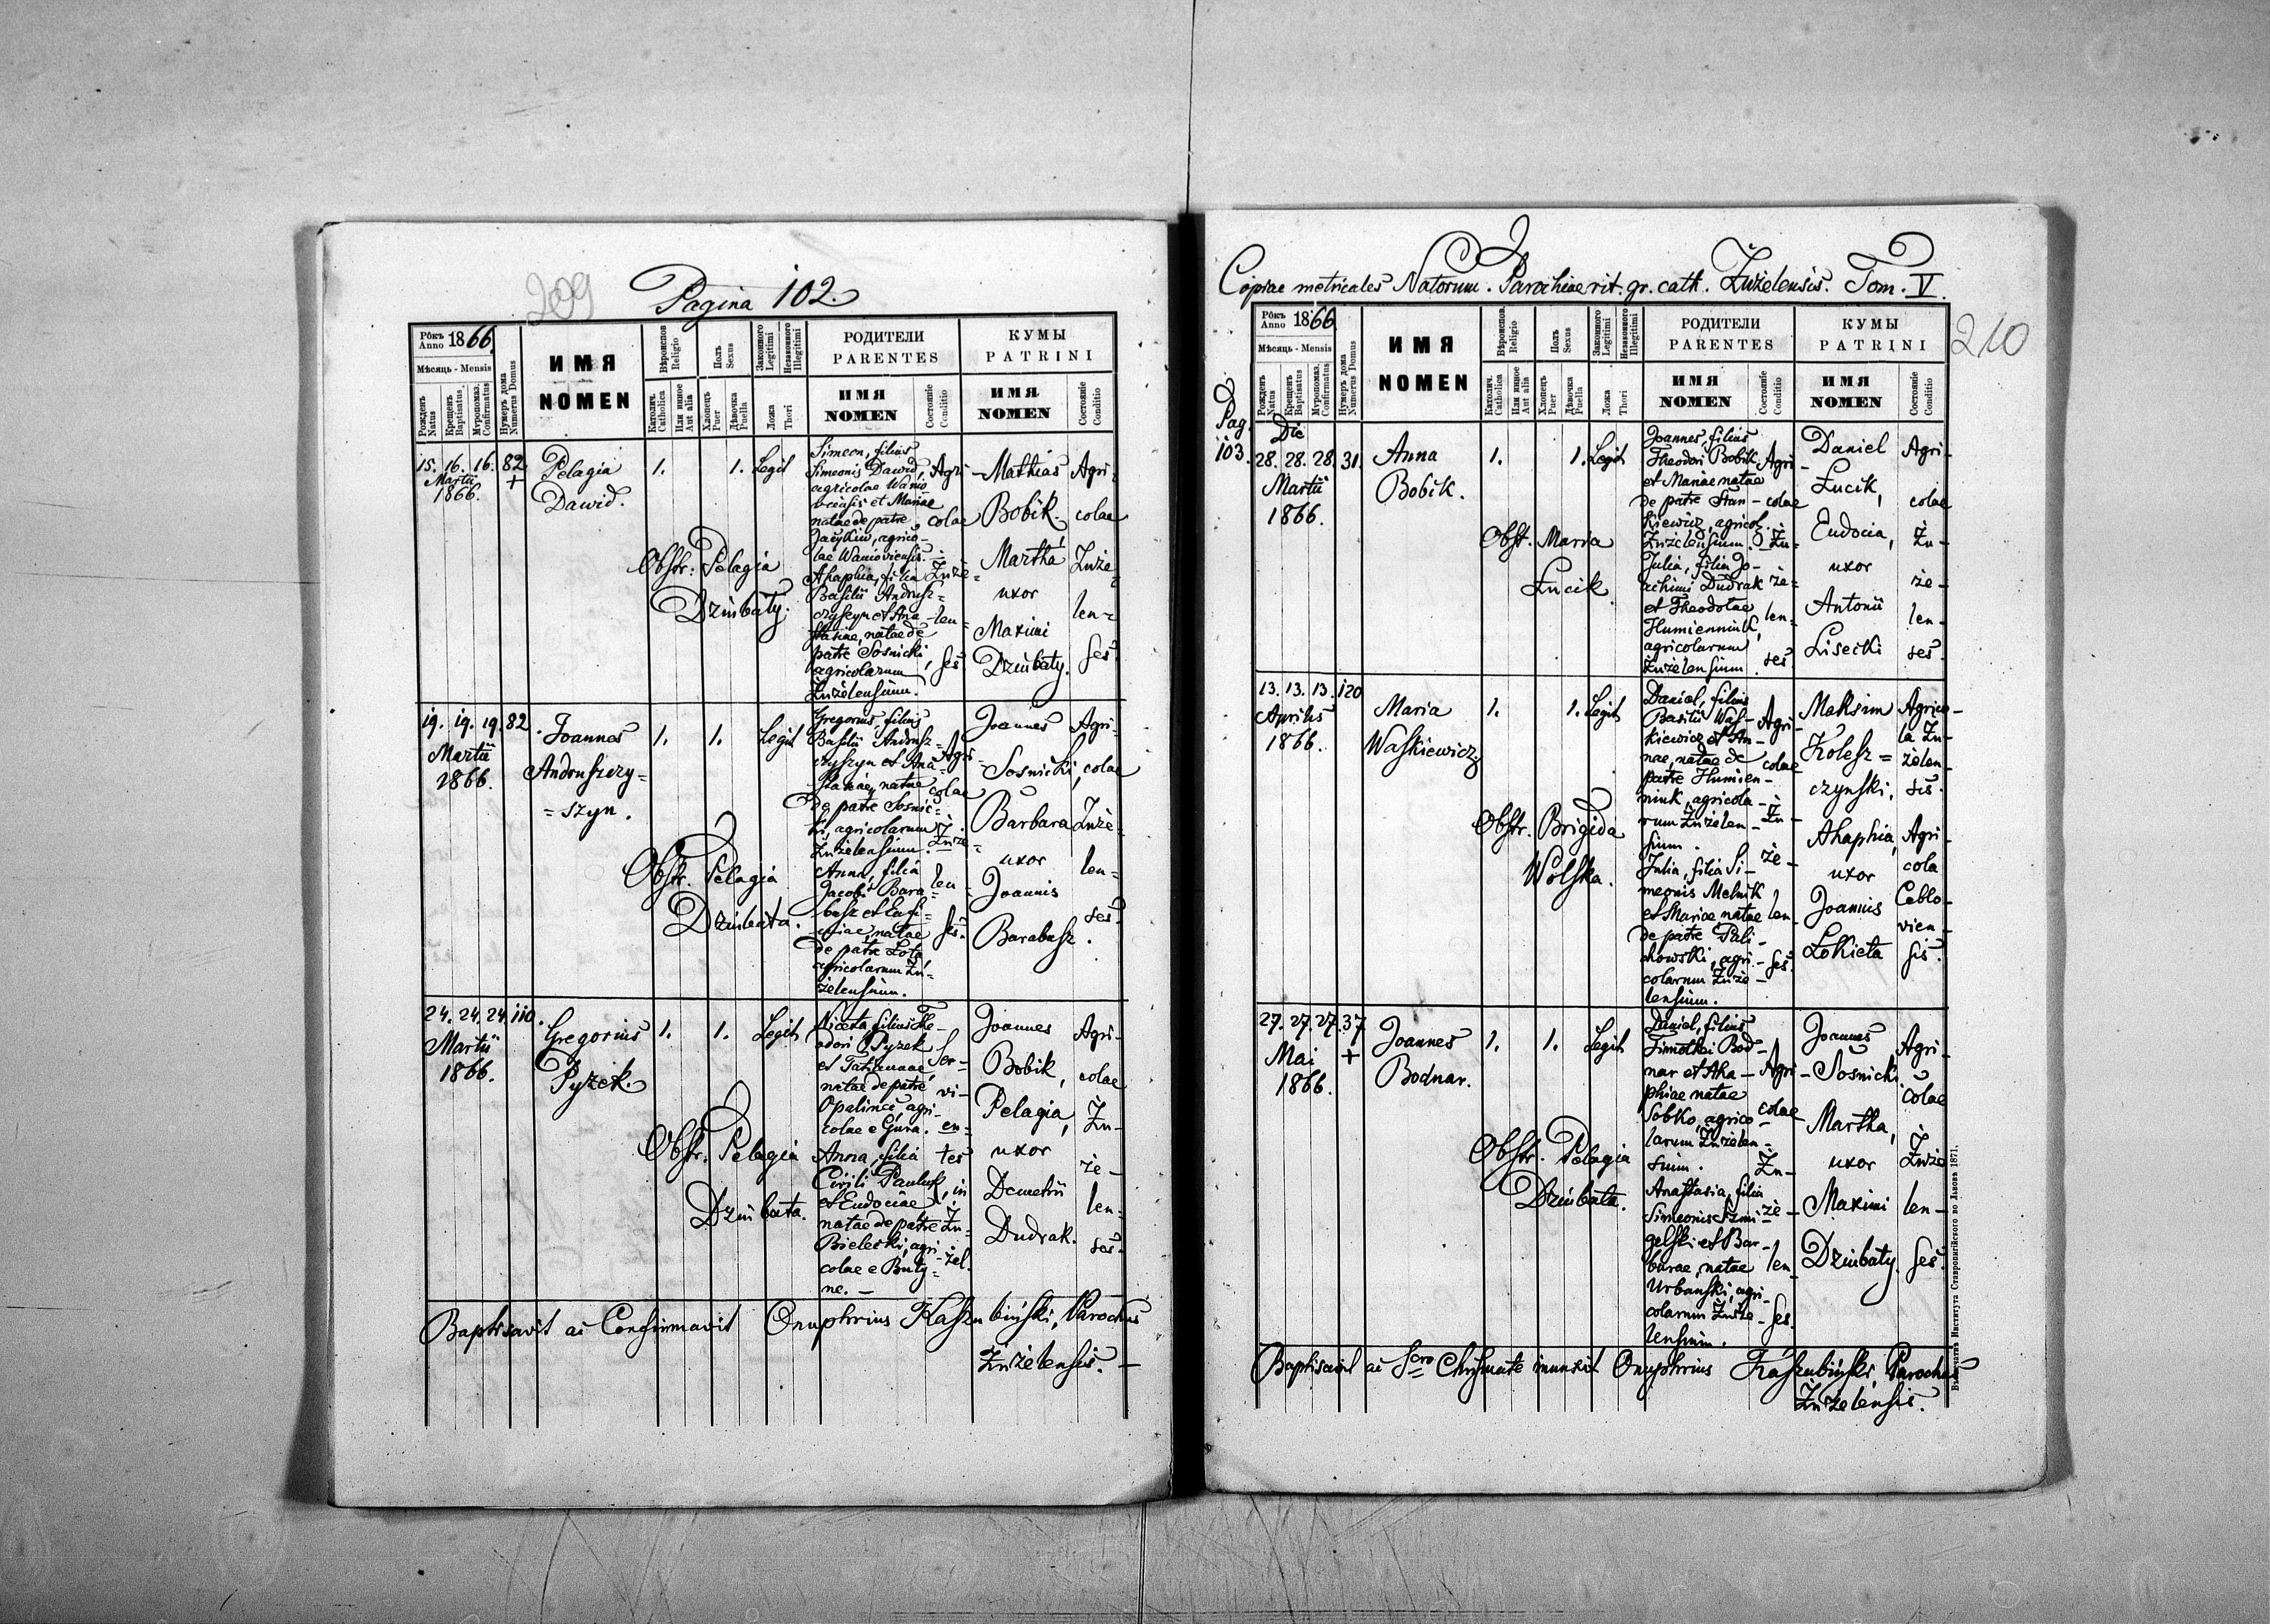 209
Pagina 102.
Рôкъ Anno 1866.
Мѣсяць - Mensis
Рожденъ Natus
Крещенъ Baptisatus
Мѵропомаз. Confirmatus
Нумеръ дома Numerus Domus
ИМЯ
NOMEN
Вѣроиспов. Religio
Католич. Catholica
Или иное Aut alia
Полъ Sexus
Хлопецъ Puer
Дѣвочка Puella
Законного Legitimi
Незаконного Illegitimi
Ложа Thori
РОДИТЕЛИ
PARENTES
ИМЯ
NOMEN
Состояніе Conditio
КУМЫ
PATRINI
ИМЯ
NOMEN
Состояніе Conditio
15. 16. 16. 82
Martii +
1866.
Pelagia
Dawid.
1. 1. Legit
Obstr: Pelagia
Dziubaty.
Simeon, filius
Simeonis Dawid,
agricolae Wanio
viensis et Mariae
natae de patre
agrico-
lae Wanioviensis.
Ahaphia, filia
Basilii Andrusz-
czyszyn et Ana-
stasiae, natae de
patre Sosnicki,
agricolarum
Żużelensium.
Agri-
colae
Żuże-
len-
ses
Mathias
Bobik.
Martha
uxor
Maximi
Dziubaty.
Agri-
colae
Żuże-
len-
ses.
19. 19. 19. 82.
Martii
1866.
Joannes
Andruszczy-
=szyn.
1. 1. Legit
Obstr. Pelagia
Dziubata.
Gregorius, filius
Basilii Andrusz-
czyszyn et Ana-
stasiae, natae
de patre Sosnic-
ki, agricolarum
Żużelensium.
Anna, filia
Jacobi Bara-
basz et Eufi-
miae, natae
de patre Łota
agricolarum Żu-
żelensium.
Agri-
colae
Żuże-
len-
ses.
Joannes
Sosnicki,
Barbara
uxor
Joannis
Barabasz.
Agri-
colae
Żuże-
len-
ses.
24. 24. 24. 110.
Martii
1866.
Gregorius
Pyzek.
1. 1. Legit
Obstr. Pelagia
Dziubata.
Niceta, filius The-
odori Pyzek
et Tatiannae,
natae de patre
Opalince, agri-
colae e Gura.
Anna, filia
Cirili Pauluk,
et Eudociae
natae de patre
Bielecki, agri-
colae e Buty-
ne.-
Ser-
vi-
en-
tes
in
Żu-
żel.
Joannes
Bobik,
Pelagia,
uxor
Demetrii
Dudrak.
Agri-
colae
Żu-
że-
len-
ses.
Baptisavit ac Confirmavit Onuphrius Kaszubiński, Parochus
Żużelensis.-
Copiae metricales Natorum. Parochiae rit. gr. cath. Żużelensis. Tom. V.
210
Рôкъ Anno 1866
Мѣсяць - Mensis
Рожденъ Natus
Крещенъ Baptisatus
Мѵропомаз. Confirmatus
Нумеръ дома Numerus Domus
ИМЯ
NOMEN
Вѣроиспов. Religio
Католич. Catholica
Или иное Aut alia
Полъ Sexus
Хлопецъ Puer
Дѣвочка Puella
Законного Legitimi
Незаконного Illegitimi
Ложа Thori
РОДИТЕЛИ
PARENTES
ИМЯ
NOMEN
Состояніе Conditio
КУМЫ
PATRINI
ИМЯ
NOMEN
Состояніе Conditio
Pag.
103.
Die
28. 28. 28. 31.
Martii
1866.
Anna
Bobik.
1. 1. Legit
Obst. Maria
Łucik.
Joannes, filius
Theodori Bobik
et Mariae natae
de patre Stan-
kiewicz, agricol.
Żużelensium.
Julia, filia Jo-
achimi Dudrak
et Theodotae
Humienniuk,
agricolarum
Żużelensium.
Agri-
colae
Żu-
że-
len-
ses.
Daniel
Łucik,
Eudocia,
uxor
Antonii
Lisecki
Agri-
colae
Żu-
że-
len-
ses.
13. 13. 13. 120
Aprilis
1866.
Maria
Waskiewicz
1. 1. Legit
Obstr. Brigida
Wolska.
Daniel, filius
Basilii Was-
kiewicz et An-
nae, natae de
patre Humien-
niuk, agricola-
rum Żużelen-
sium.
Julia, filia Si-
meonis Melnik
et Mariae, natae
de patre Pali-
chowski, agri-
colarum Żuże-
lensium.
Agri-
colae
Żu-
że-
len-
ses.
Maksim
Kolesz=
czynski,
Ahaphia,
uxor
Joannis
Łokieta
Agrico-
la Żu-
żelen-
sis.
Agri-
cola
Ceblo-
vien-
sis.
27. 27. 27. 37
Mai +
1866.
Joannes
Bodnar.
1. 1. Legit
Obstr. Pelagia
Dziubata.
Daniel, filius
Timothei Bod-
nar et Aha-
phiae natae
Sobko, agrico-
larum Żużelen-
sium.
Anastasia, filia
Simeonis Szmi-
gelski et Bar-
barae, natae
Urbanski, agri-
colarum Żuże-
lensium.
Agri-
colae
Żu-
że-
len-
ses.
Joannes
Sosnicki
Martha,
uxor
Maximi
Dziubaty.
Agri-
colae
Żuże
len-
ses.
Baptisavit ac Scro Chrismate inunxit Onuphrius Kaszubiński, Parochus
Żużelensis.
Вѣ печатнѣ Института Ставропигійского во Львовѣ 1871.